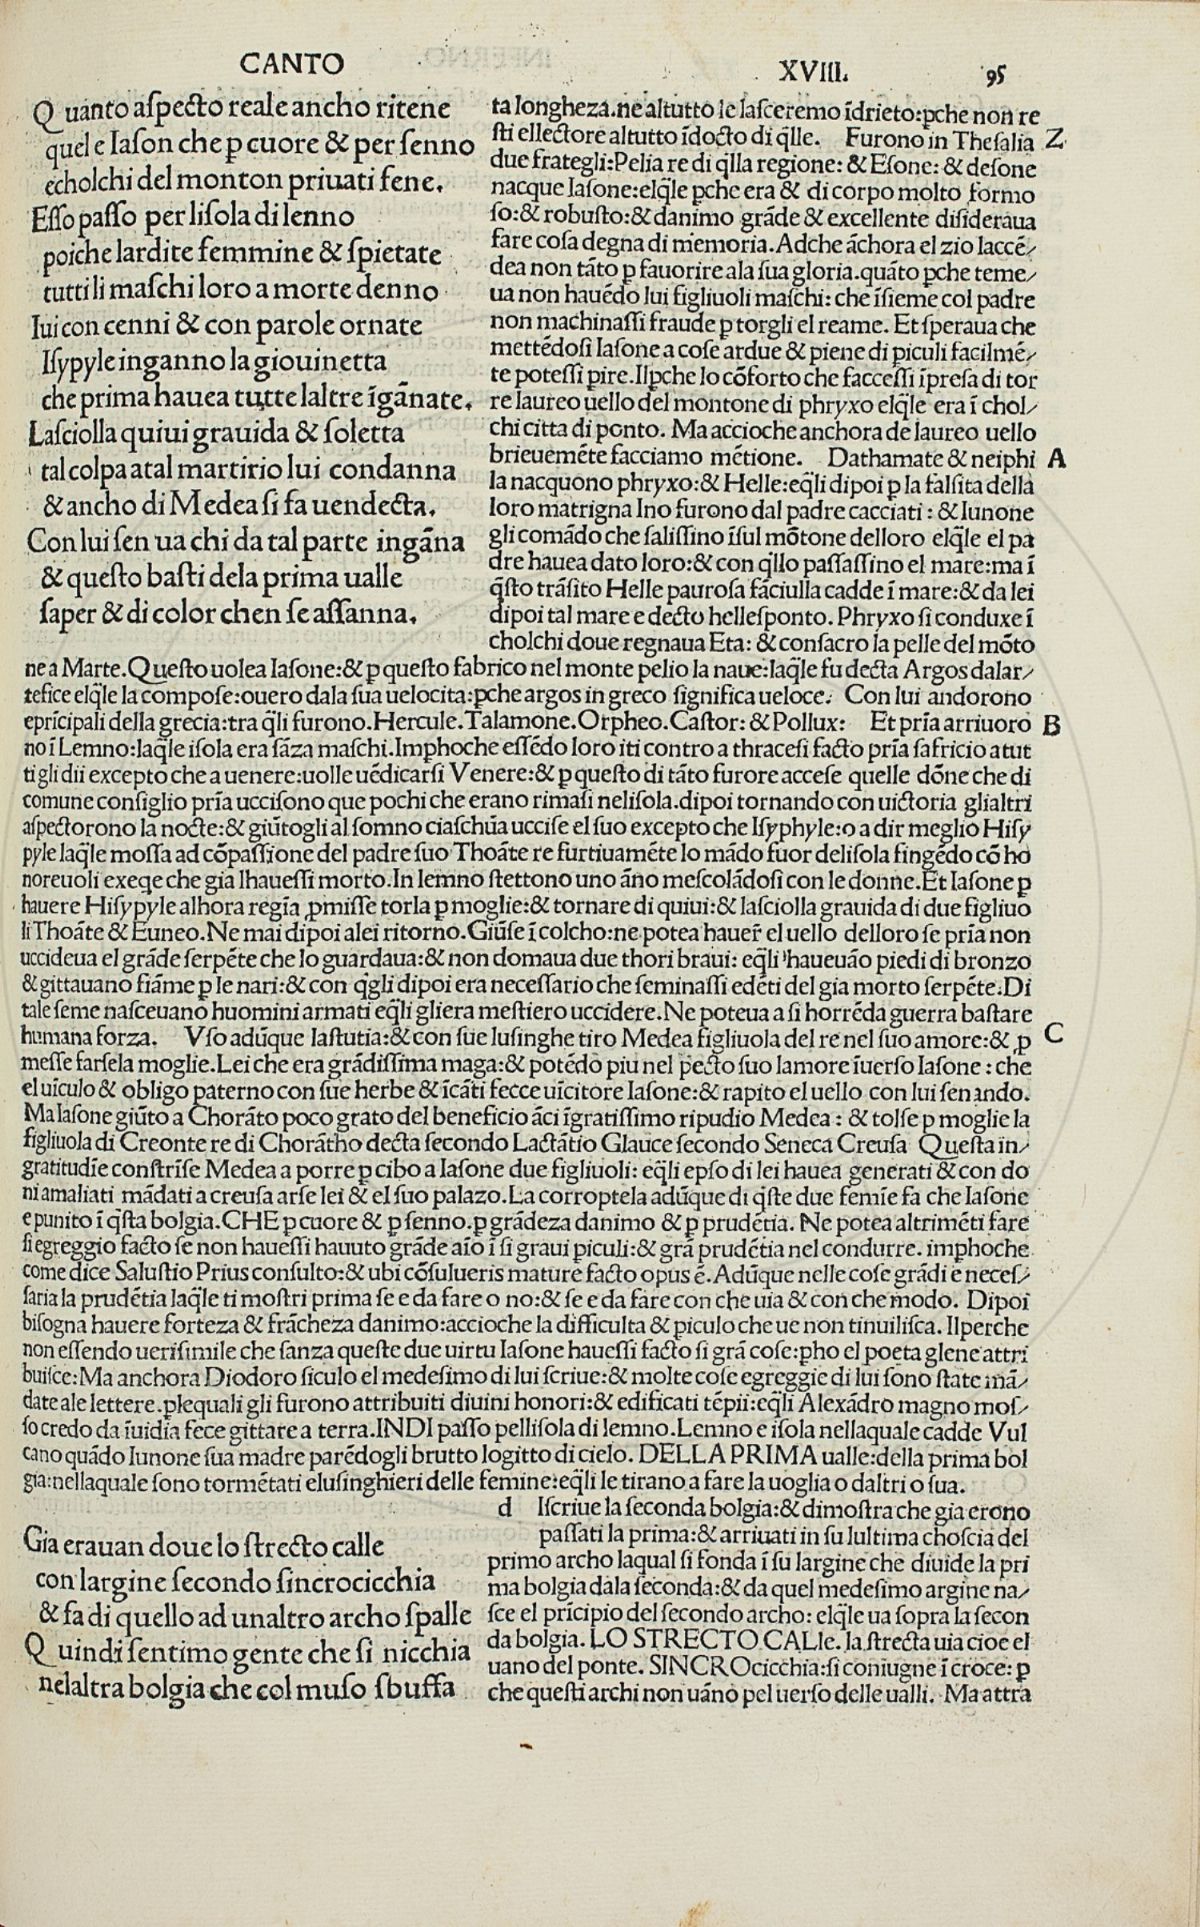 CANTO XVIII. 95
Quanto aſpecto reale ancho ritene
quel e Iaſon che ꝑ cuore & per ſenno
echolchi del monton priuati fene.
Eſſo paſſo per liſola di lenno
poiche lardite femmine & ſpietate
tutti li maſchi loro a morte denno
Iui con cenni & con parole ornate
Iſypyle inganno la giouinetta
che prima hauea tutte laltre īgānate.
Laſciolla quiui grauida & ſoletta
tal colpa atal martirio lui condanna
& ancho di Medea ſi fa uendecta.
Con lui ſen ua chi da tal parte ingāna
& queſto baſti dela prima ualle
ſaper & di color chen ſe aſſanna.
ta longheza.ne altutto le laſceremo īdrieto:ꝑche non re
ſti ellectore altutto īdocto di q̄lle. Furono in Theſalia Z
due frategli:Pelia re di q̄lla regione: & Eſone: & deſone
nacque Iaſone:elq̄le ꝑche era & di corpo molto formo
ſo:& robuſto:& danimo grāde & excellente diſideraua
fare coſa degna di memoria.Adche āchora el zio laccē⸗
dea non tāto ꝑ fauorire ala ſua gloria.quāto ꝑche teme⸗
ua non hauēdo lui figliuoli maſchi: che īſieme col padre
non machinaſſi fraude ꝑ torgli el reame. Et ſperaua che
mettēdoſi Iaſone a coſe ardue & piene di piculi facilmē⸗
te poteſſi pire.Ilꝑche lo cōforto che faceſſi īpreſa di tor
re laureo uello del montone di phryxo elq̄le era ī chol⸗
chi citta di ponto. Ma accioche anchora de laureo uello
brieuemēte facciamo mētione. Dathamate & neiphi A
la nacquono phryxo:& Helle:eq̄li dipoi ꝑ la falſita della
loro matrigna Ino furono dal padre cacciati : & Iunone
gli comādo che ſaliſſino īſul mōtone delloro elq̄le el pa
dre hauea dato loro:& con q̄llo paſſaſſino el mare:ma ī
q̄ſto trāſito Helle pauroſa fāciulla cadde ī mare:& da lei
dipoi tal mare e decto helleſponto. Phryxo ſi conduxe ī
cholchi doue regnaua Eta: & conſacro la pelle del mōto
ne a Marte.Queſto uolea Iaſone:& ꝑ queſto fabrico nel monte pelio la naue:laq̄le fu decta Argos dalar⸗
tefice elq̄le la compoſe:ouero dala ſua uelocita:ꝑche argos in greco ſignifica ueloce. Con lui andorono
eprīcipali della grecia:tra q̄li furono.Hercule.Talamone.Orpheo.Caſtor: & Pollux: Et prīa arriuoro B
no ī Lemno:laq̄le iſola era ſāza maſchi.Imꝑhoche eſſēdo loro iti contro a thraceſi facto prīa ſafricio a tut
ti gli dii excepto che a uenere:uolle uēdicarſi Venere:& ꝑ queſto di tāto furore acceſe quelle dōne che di
comune conſiglio prīa ucciſono que pochi che erano rimaſi neliſola.dipoi tornando con uictoria glialtri
aſpectorono la nocte:& giūtogli al ſomno ciaſchūa ucciſe el ſuo excepto che Iſyphyle:o a dir meglio Hiſy
pyle laq̄le moſſa ad cōpaſſione del padre ſuo Thoāte re furtiuamēte lo mādo fuor deliſola fingēdo cō ho
noreuoli exeqe che gia lhaueſſi morto.In lemno ſtettono uno āno meſcolādoſi con le donne.Et Iaſone ꝑ
hauere Hiſypyle alhora regīa ꝓmiſſe torla ꝑ moglie:& tornare di quiui:& laſciolla grauida di due figliuo
li Thoāte & Euneo.Ne mai dipoi alei ritorno.Giūſe ī colcho:ne potea hauer̄ el uello delloro ſe prīa non
uccideua el grāde ſerpēte che lo guardaua:& non domaua due thori braui: eq̄li haueuāo piedi di bronzo
& gittauano fiāme ꝑ le nari:& con q̄gli dipoi era neceſſario che ſeminaſſi edēti del gia morto ſerpēte.Di
tale ſeme naſceuano huomini armati eq̄li gliera meſtiero uccidere.Ne poteua a ſi horrēda guerra baſtare
humana forza. Vſo adūque laſtutia:& con ſue luſinghe tiro Medea figliuola del re nel ſuo amore:& ꝓ C
meſſe farſela moglie.Lei che era grādiſſima maga:& potēdo piu nel pecto ſuo lamore īuerſo Iaſone : che
el uīculo & obligo paterno con ſue herbe & īcāti fecce uīcitore Iaſone:& rapito el uello con lui ſen ando.
Ma Iaſone giūto a Chorāto poco grato del beneficio āci īgratiſſimo ripudio Medea : & tolſe ꝑ moglie la
figliuola di Creonte re di Chorātho decta ſecondo Lactātio Glauce ſecondo Seneca Creuſa Queſta in⸗
gratitudīe conſtrīſe Medea a porre ꝑ cibo a Iaſone due figliuoli: eq̄li epſo di lei hauea generati & con do
ni amaliati mādati a creuſa arſe lei & el ſuo palazo.La corroptela adūque di q̄ſte due femīe fa che Iaſone
e punito ī q̄ſta bolgia.CHE ꝑ cuore & ꝑ ſenno.ꝑ grādeza danimo & ꝑ prudētia. Ne potea altrimēti fare
ſi egreggio facto ſe non haueſſi hauuto grāde aīo ī ſi graui piculi:& grā prudētia nel condurre. imꝑhoche
come dice Saluſtio Prius conſulto:& ubi cōſulueris mature facto opus ē.Adūque nelle coſe grādi e neceſ⸗
ſaria la prudētia laq̄le ti moſtri prima ſe e da fare o no:& ſe e da fare con che uia & con che modo. Dipoi
biſogna hauere forteza & frācheza danimo:accioche la difficulta & piculo che ue non tinuiliſca. Ilperche
non eſſendo ueriſimile che ſanza queſte due uirtu Iaſone haueſſi facto ſi grā coſe:ꝑho el poeta glene attri
buiſce:Ma anchora Diodoro ſiculo el medeſimo di lui ſcriue:& molte coſe egreggie di lui ſono ſtate mā⸗
date ale lettere.ꝑlequali gli furono attribuiti diuini honori:& edificati tēpii:eq̄li Alexādro magno moſ⸗
ſo credo da īuidia fece gittare a terra.INDI paſſo pelliſola di lemno. Lemno e iſola nellaquale cadde Vul
cano quādo Iunone ſua madre parēdogli brutto logitto di cielo. DELLA PRIMA ualle:della prima bol
gia:nellaquale ſono tormētati eluſinghieri delle femine:eq̄li le tirano a fare la uoglia o daltri o ſua.
Gia erauan doue lo ſtrecto calle
con largine ſecondo ſincrocicchia
& fa di quello ad unaltro archo ſpalle
Quindi ſentimo gente che ſi nicchia
nelaltra bolgia che col muſo ſbuffa
d Iſcriue la ſeconda bolgia:& dimoſtra che gia erono
paſſati la prima:& arriuati in ſu lultima choſcia del
primo archo laqual ſi fonda ī ſu largine che diuide la pri
ma bolgia dala ſeconda:& da quel medeſimo argine na⸗
ſce el prīcipio del ſecondo archo: elq̄le ua ſopra la ſecon
da bolgia. LO STRECTO CALle. la ſtrecta uia cioe el
uano del ponte. SINCROcicchia:ſi coniugne ī croce: ꝑ
che queſti archi non uāno pel uerſo delle ualli. Ma attra